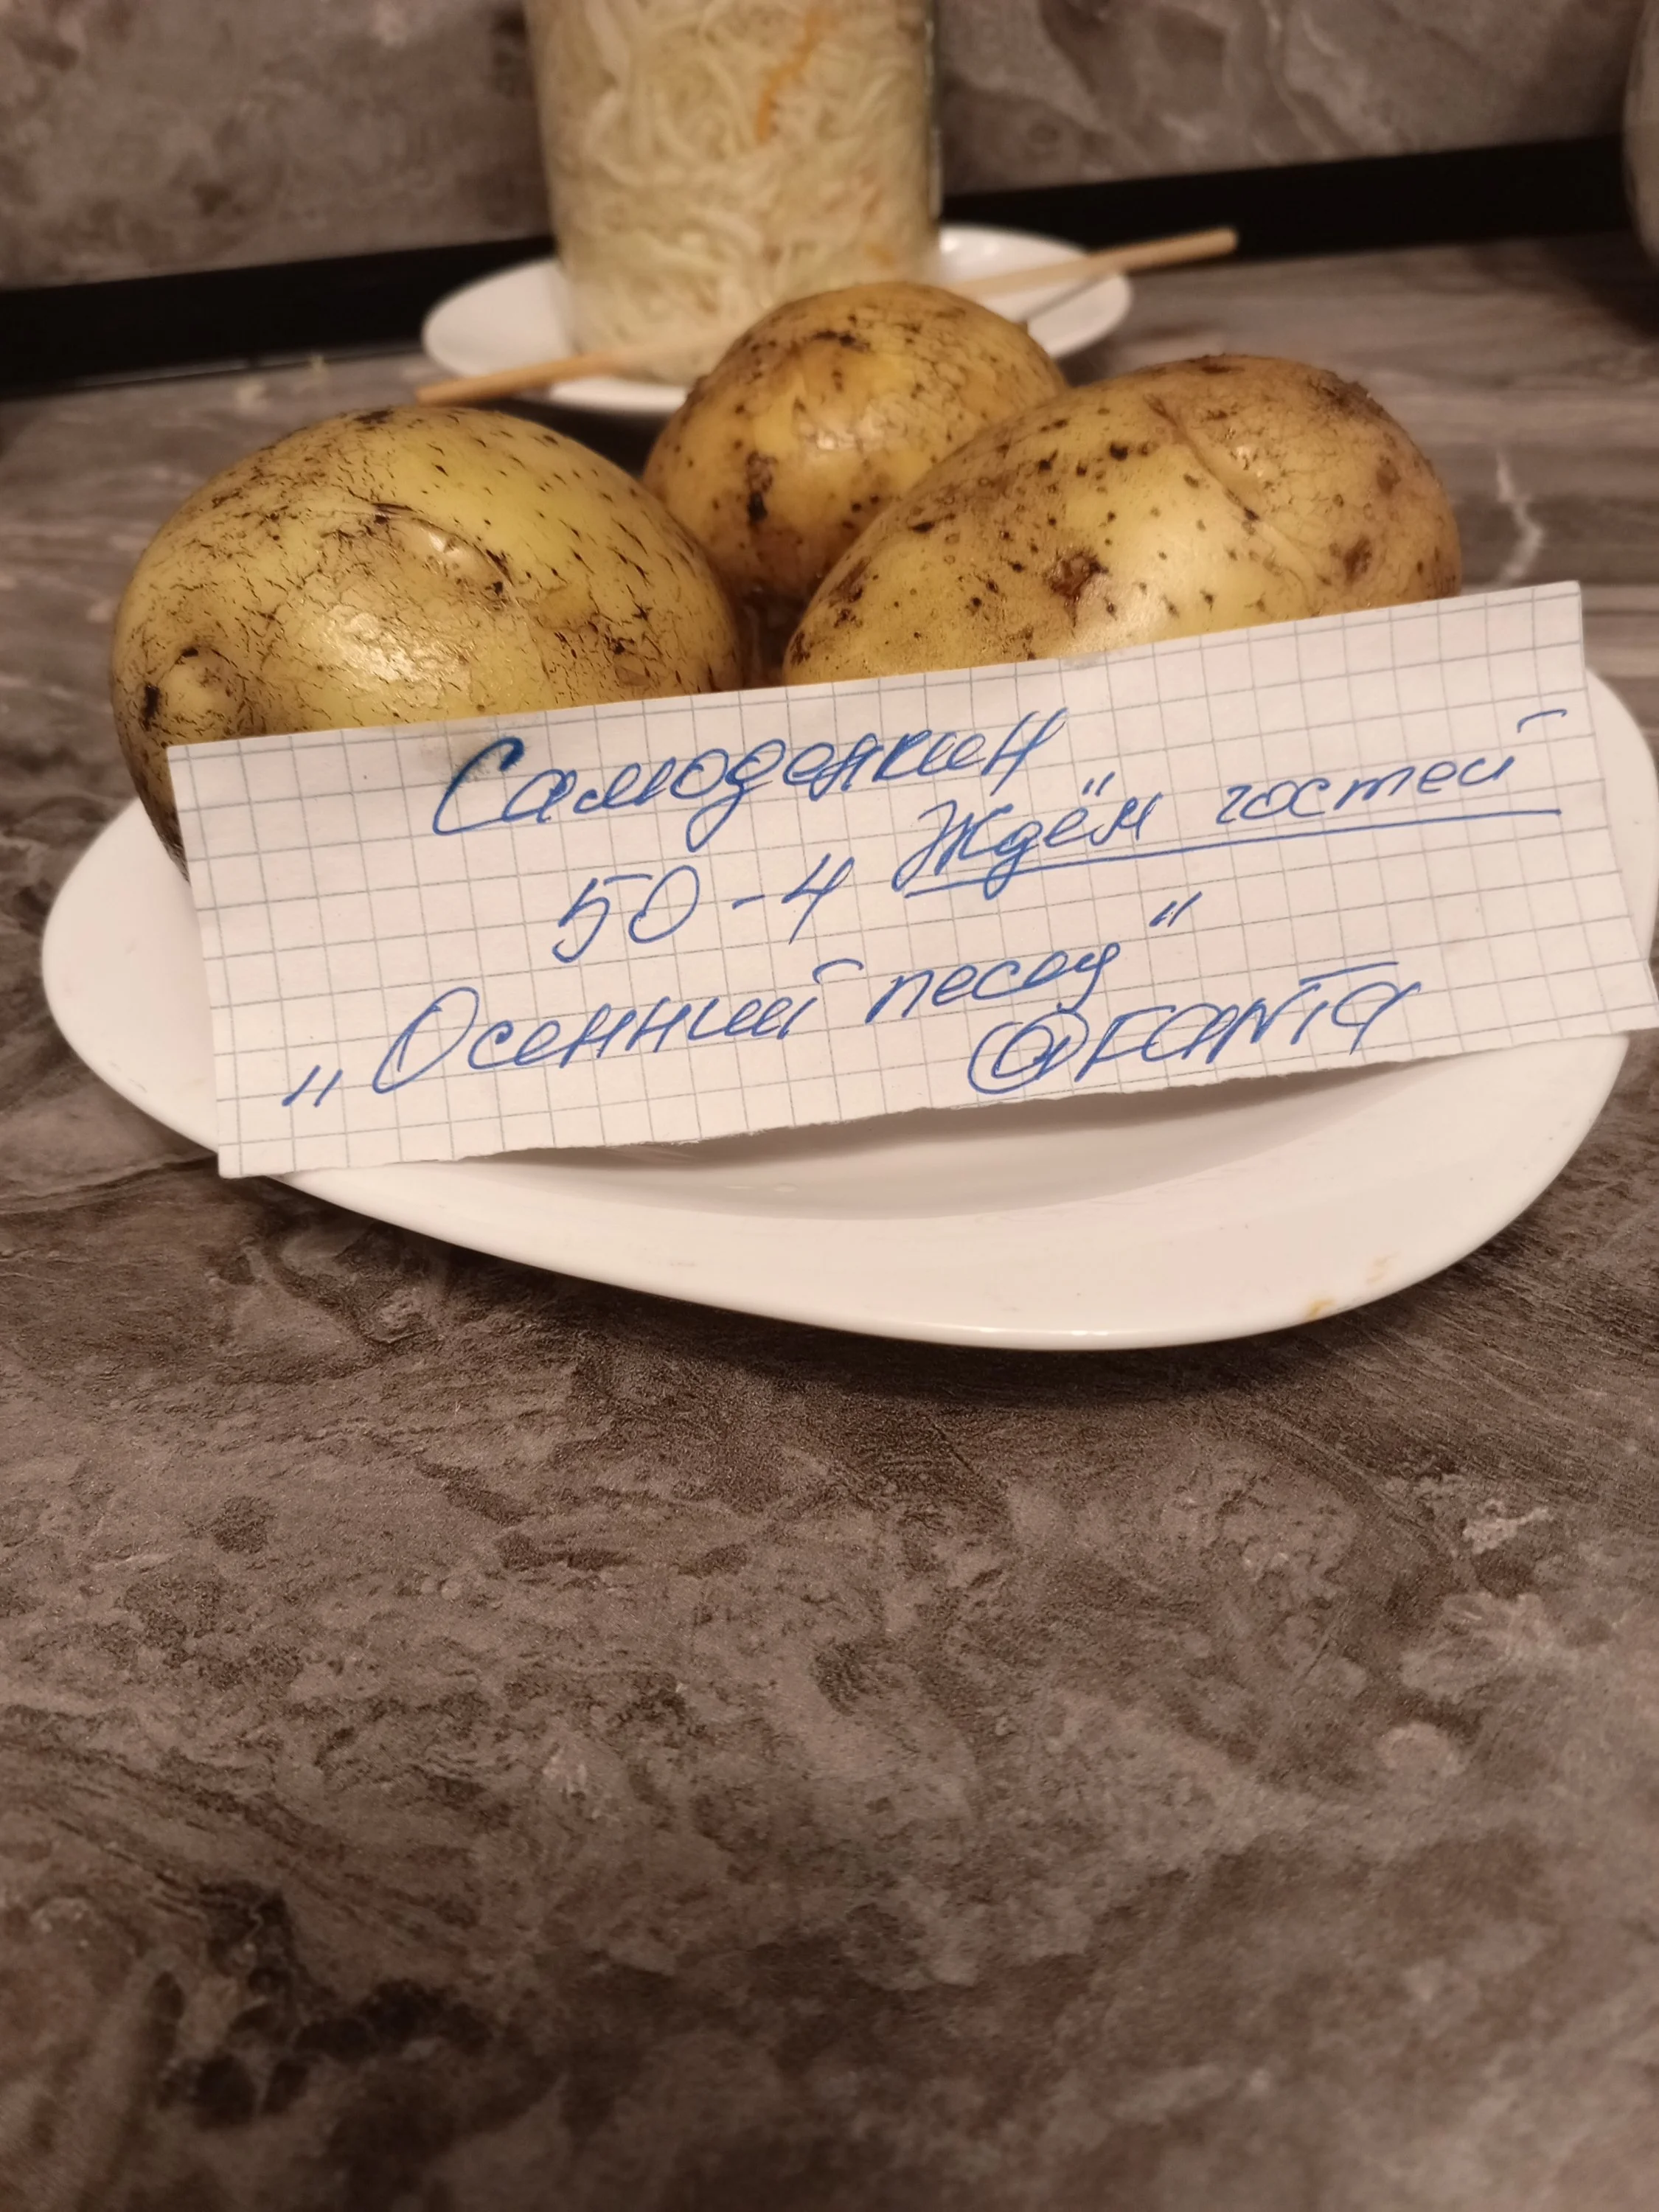 Самоделкин
50-4 Ждём гостей
„Осенний песец"
@FANTA